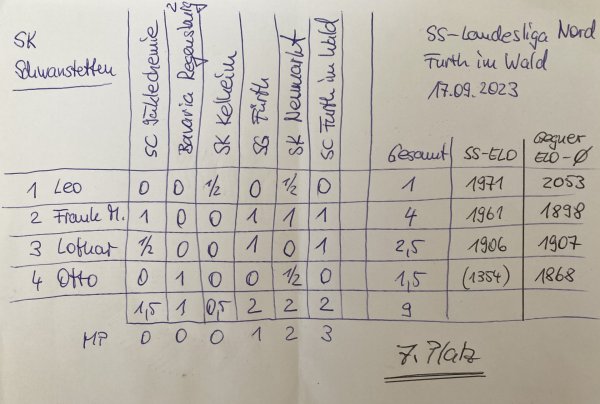 SK Schwanstetten
SC Jäklechemie
Bavaria Regensburg 2
SK Kelheim
SG Fürth
SK Neumarkt
SC Furth im Wald
SS-Landesliga Nord
Furth im Wald
17.09.2023
Gesamt SS-ELO Gegner ELO-Ø
1 Leo 0 0 1/2 0 1/2 0 1 1971 2053
2 Frank M. 1 0 0 1 1 1 4 1961 1898
3 Lothar 1/2 0 0 1 0 1 2,5 1906 1907
4 Otto 0 1 0 0 1/2 0 1,5 (1354) 1868
1,5 1 0,5 2 2 2 9
MP 0 0 0 1 2 3
7. Platz